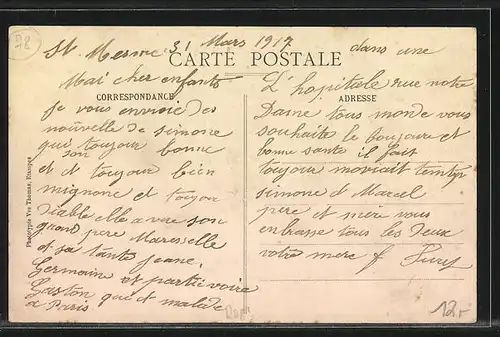 78
St. Mesme 31 Mars 1917
CARTE POSTALE
Mai cher enfants
CORRESPONDANCE
je vous envoie des
nouvelle de simone
qui toujour bonne
son
et et toujour bien
mignone et toujour
Diable elle avec son
grand pere Marselle
et sa tante jeane.
Germaine et partie voire
Gaston qui et malade
a Paris
dans une
L'hospitale rue notre
ADRESSE
Dame tous monde vous
souhaite le boujoure et
bonne sante il fait
toujour moviait temp
simone et Marcel
pere et mere vous
enbrasse tous les Deux
votre mere f
Phototypie Vve Thomas, Etampes
12